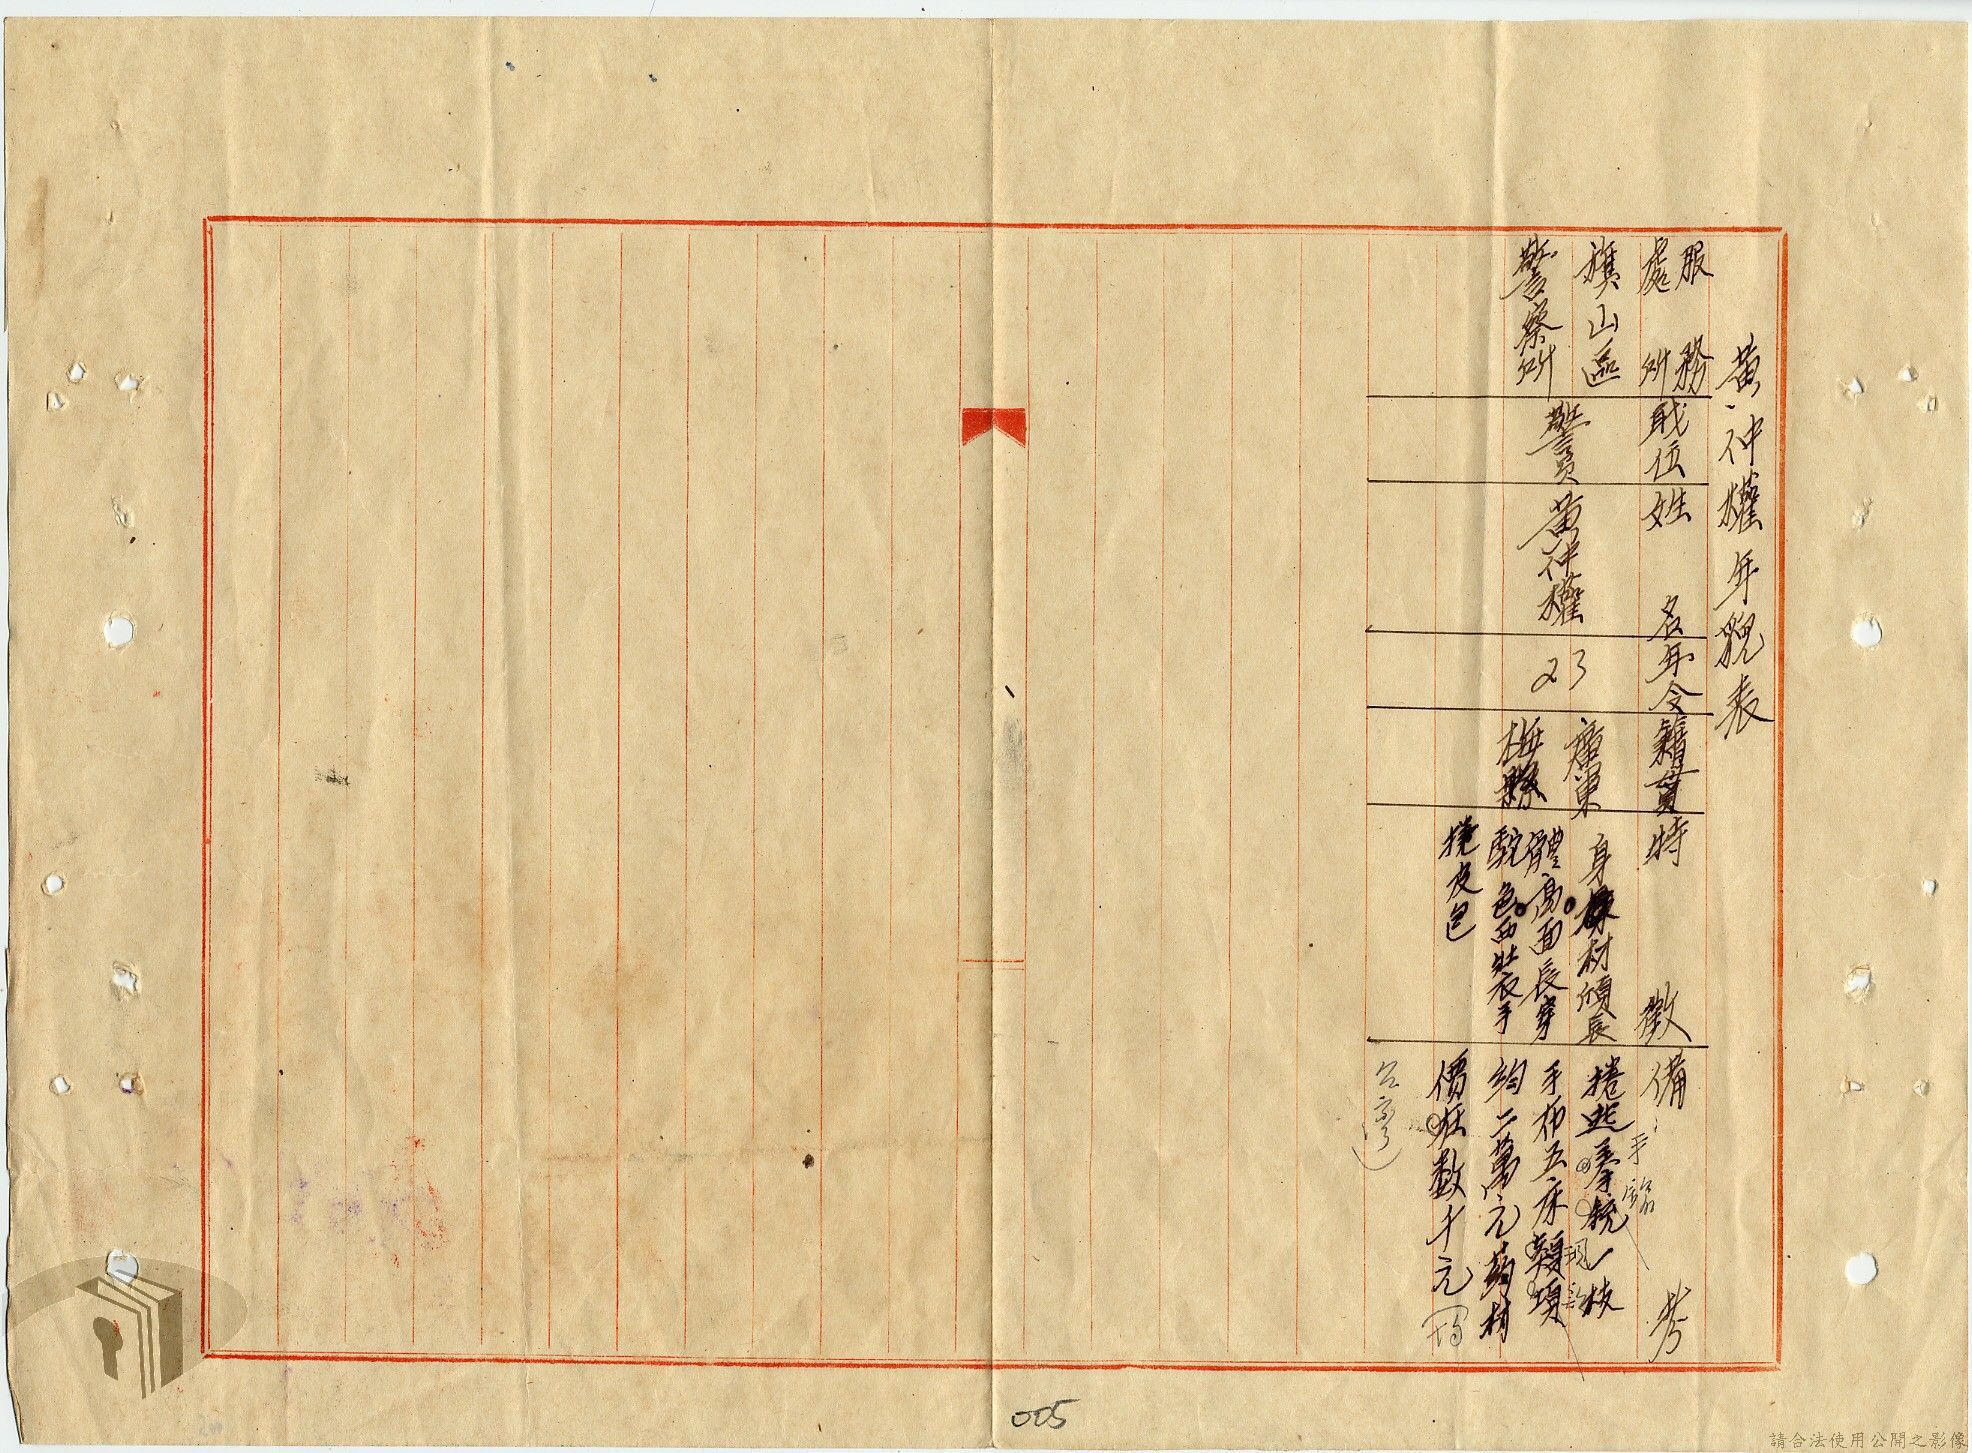 黃仲權年貌表
服務
處所
職位
姓名
年令
籍貫
特徵
備考
旗山區
警察所
警員
黃仲權
23
廣東
梅縣
身材頎長
體高面長穿
駝色西裝手
提皮包
捲逃手鎗一枝
手布五疋
約二萬元葯材
價值数千元
005
請合法使用公開之影像